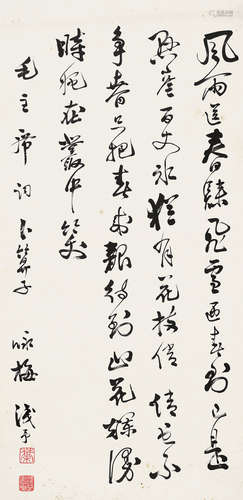 風雨送春歸飛雪迎春到已是
懸崖百丈冰猶有花枝俏俏也不
争春只把春來報待到山花爛漫
時她在叢中笑
毛主席词卜算子 咏梅 淺予